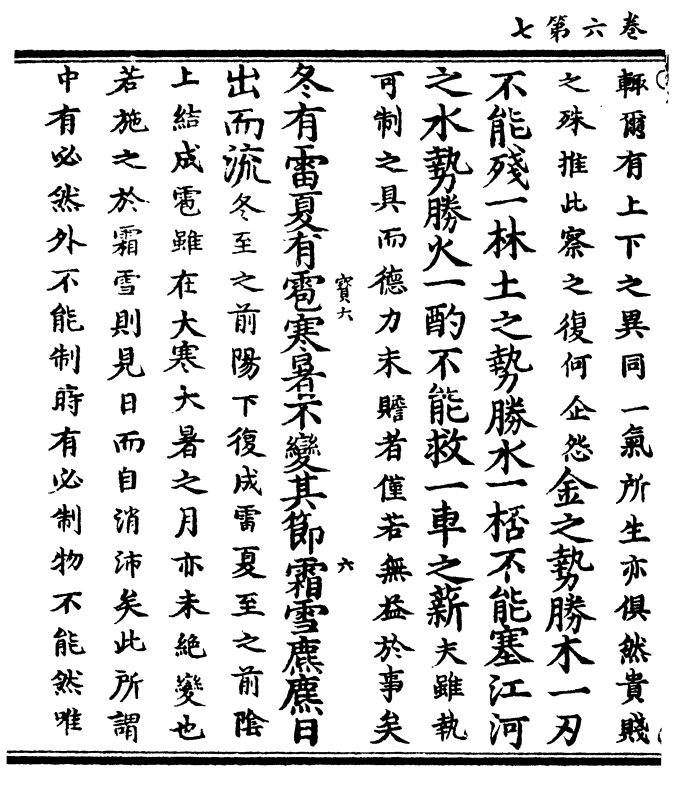 卷六第七
輒爾有上下之異同一氣所生亦俱然貴賤
之殊推此察之復何企怨金之勢勝木一刃
不能殘一林土之勢勝水一桮不能塞江河
之水勢勝火一酌不能救一車之薪夫雖執
可制之具而德力未贍者僅若無益於事矣
寶六
六
冬有雷夏有雹寒暑不變其節霜雪麃麃日
出而流冬至之前陽下復成雷夏至之前陰
上結成雹雖在大寒大暑之月亦未絕變也
若施之於霜雪則見日而自消沛矣此所謂
中有必然外不能制時有必制物不能然唯